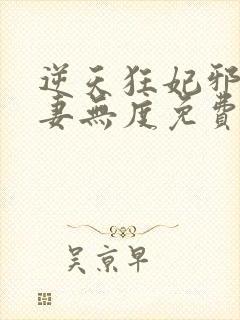 逆天狂妃邪
妻無度免費
吴京早